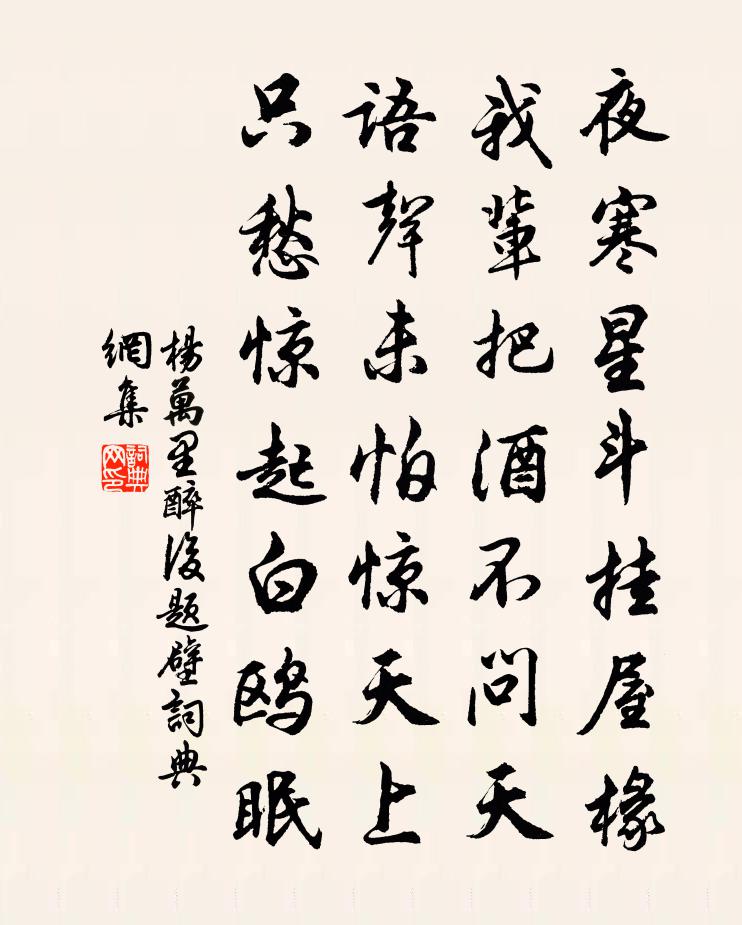 夜寒星斗挂屋椽
我輩把酒不問天
語聲未怕惊天上
只愁惊起白鸥眠
楊萬里醉後題壁詞典
網集
詞典
网印